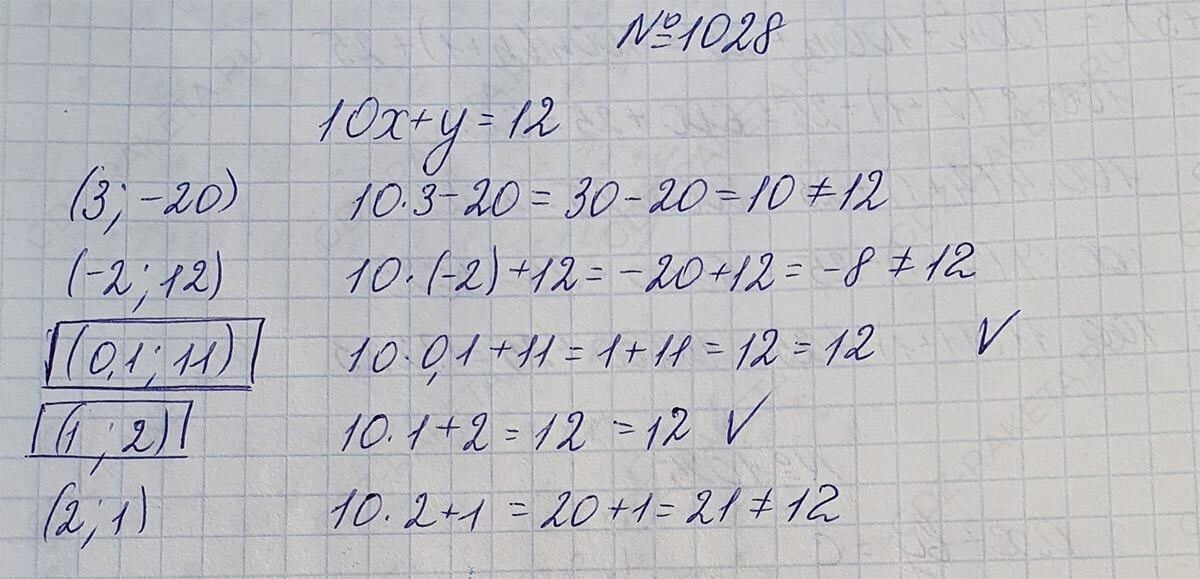 №1028
10x+y=12
(3; -20) 10·3-20=30-20=10≠12
(-2; 12) 10·(-2)+12=-20+12=-8≠12
(0,1; 11) 10·0,1+11=1+11=12=12 ✓
(1; 2) 10·1+2=12=12 ✓
(2; 1) 10·2+1=20+1=21≠12